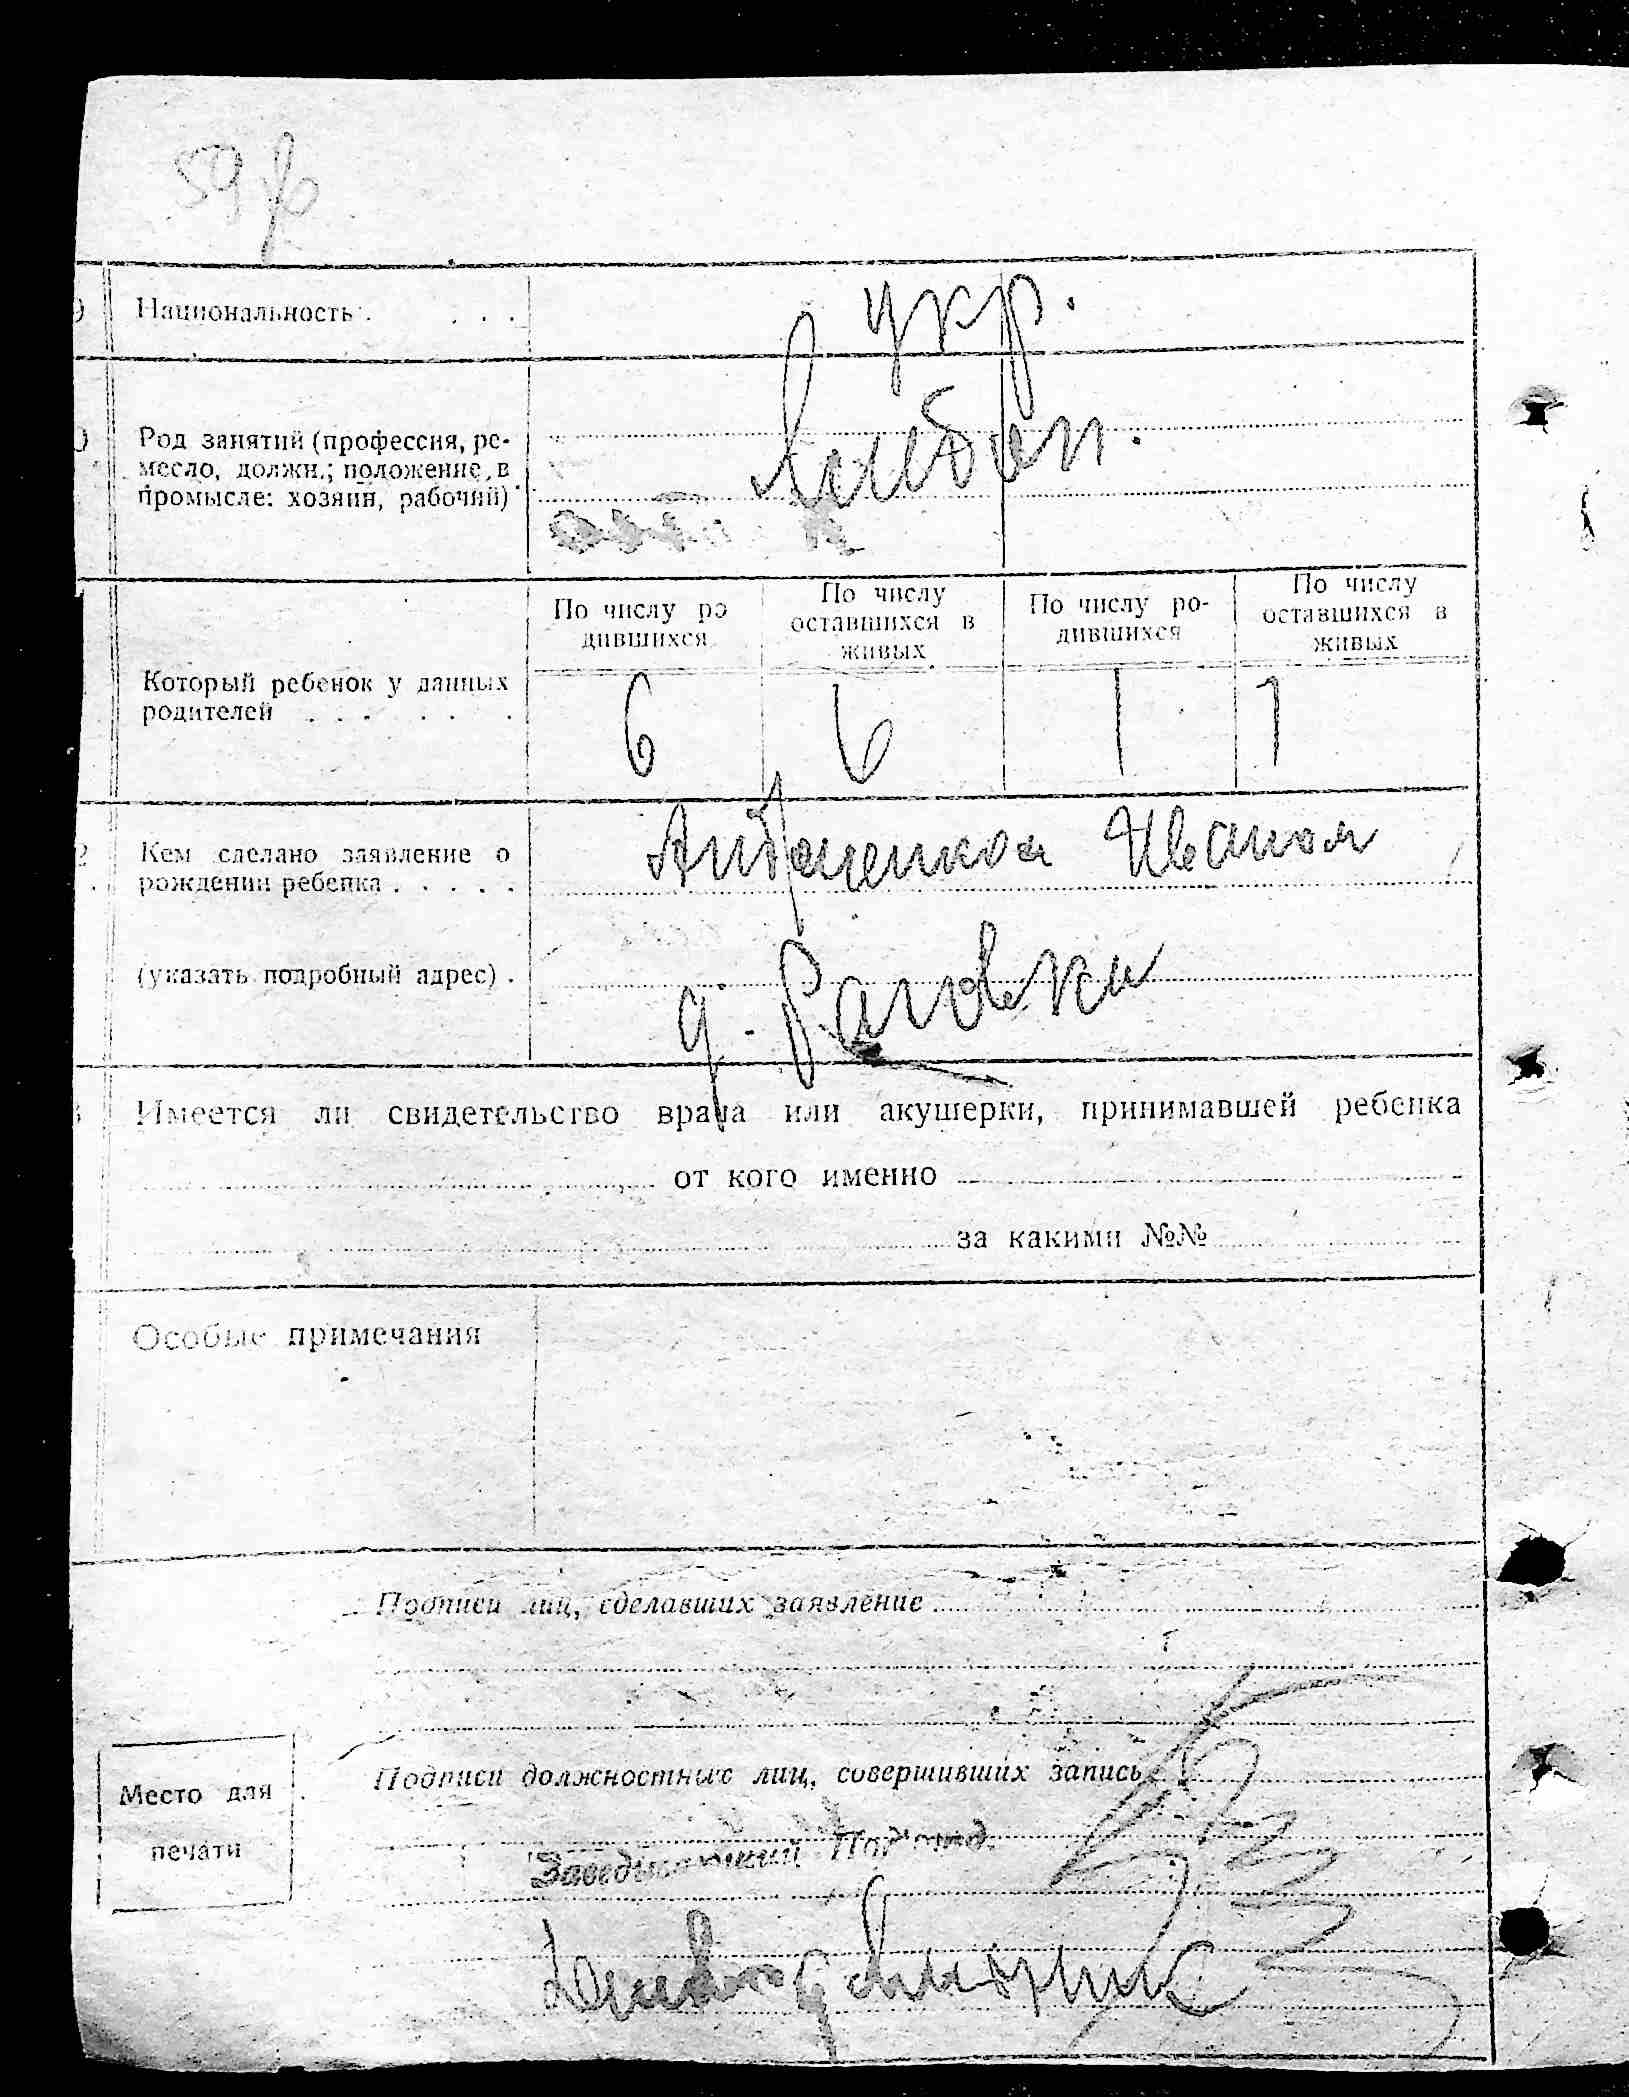 59
9 Национальность . . . . укр.
Род занятий (профессия, ре-
месло, должн.; положение в
промысле: хозяин, рабочий)
Хлебоп.
По числу ро
дившихся
По числу
оставшихся в
живых
По числу ро-
дившихся
По числу
оставшихся в
живых
Который ребенок у данных
родителей . . . . . . .
6 6 1 1
2 Кем сделано заявление о
рождении ребенка . . . . .
Иваном
(указать подробный адрес) .
д.
Имеется ли свидетельство врача или акушерки, принимавшей ребенка
от кого именно
за какими №№
Особые примечания
Подписи лиц, сделавших заявление
Подписи должностных лиц, совершивших запись
Место для
печати
Заведывающий